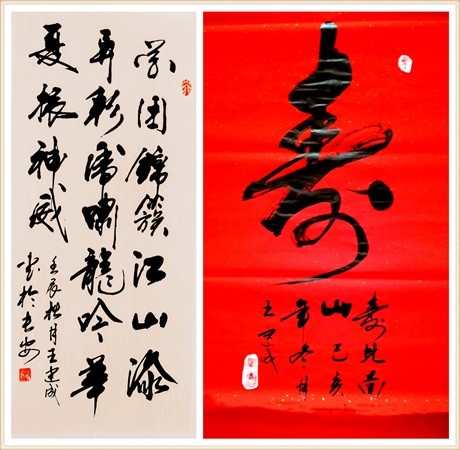 花团锦簇江山添
异彩虎啸龙吟华
夏振神威
壬辰月王建成
书于长安
寿
寿比南
山己亥
年冬月
王建成